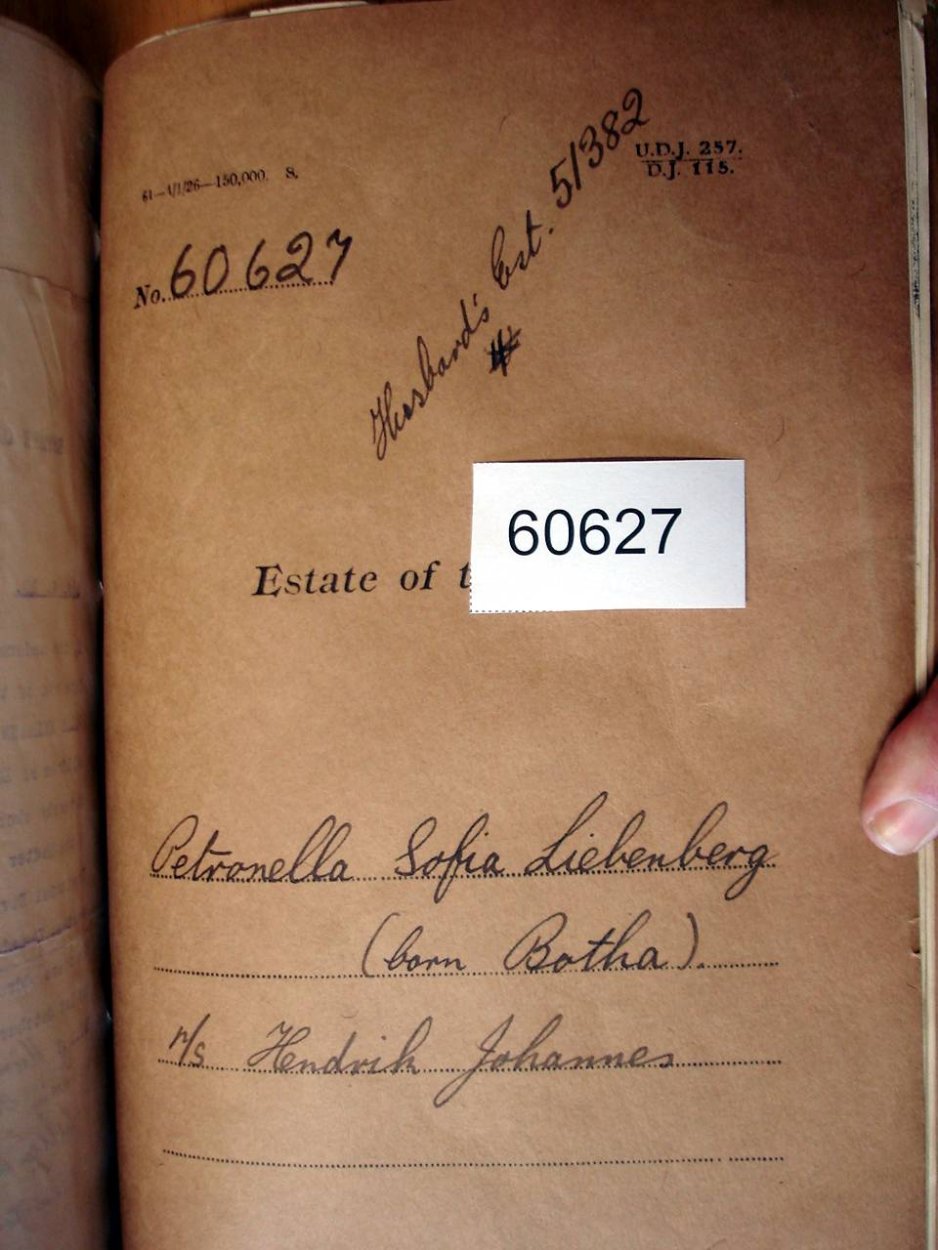 61—1/1/26—150,000. S.
U.D.J. 257.
D.J. 115.
No. 60627
Husband's Est. 51382
60627
Estate of t
Petronella Sofia Liebenberg
(born Botha).
r/s Hendrik Johannes